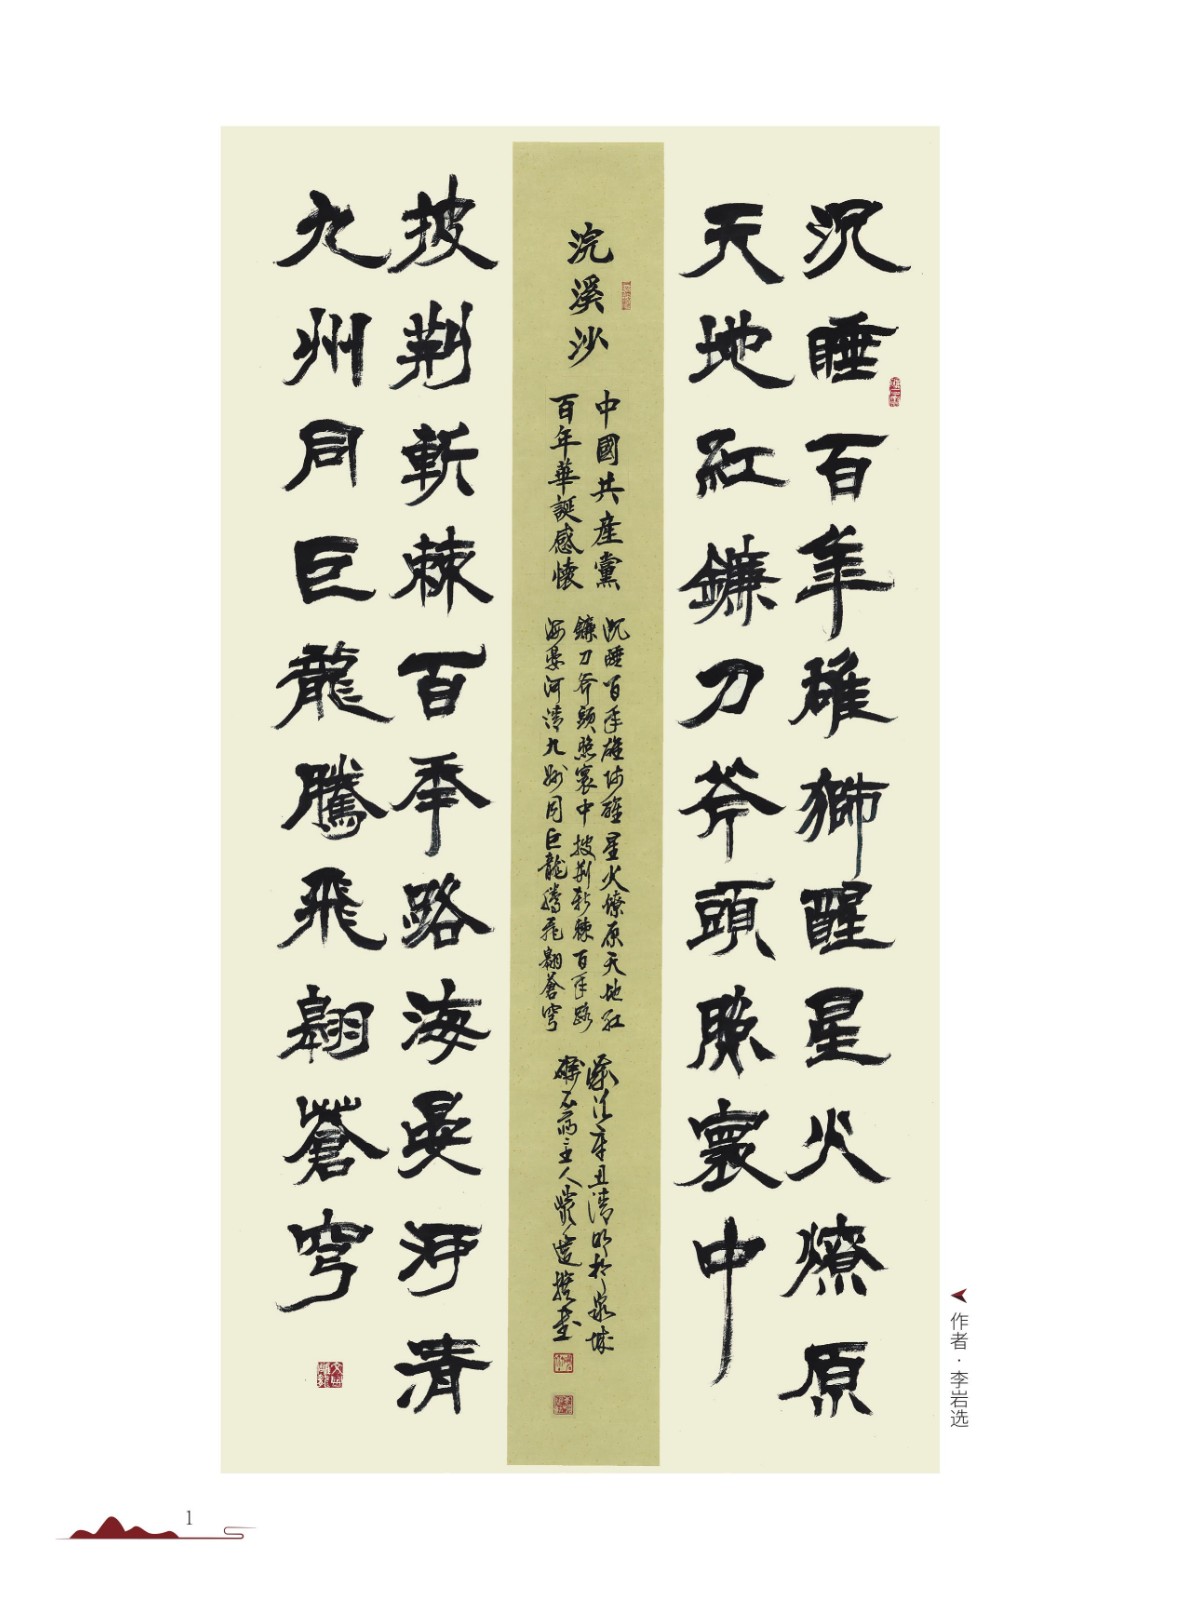 沉睡百年雄獅醒星火燎原
天地紅鐮刀斧頭照寰中
浣溪沙
中國共産黨
百年華誕感懷
沉睡百年雄师醒星火燎原天地红
鐮刀斧頭照寰中披荆斬棘百年路
海晏河清九州同巨龍騰飛翱蒼穹
歲次辛丑清明於泉城
石齋主人巖選撰書
披荆斬棘百年路海晏河清
九州同巨龍騰飛翱蒼穹
作者·李岩选
1